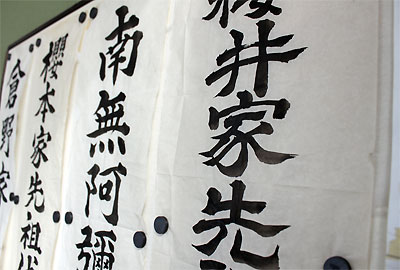 井家先祖
南無阿彌
櫻本家先祖代
倉野家